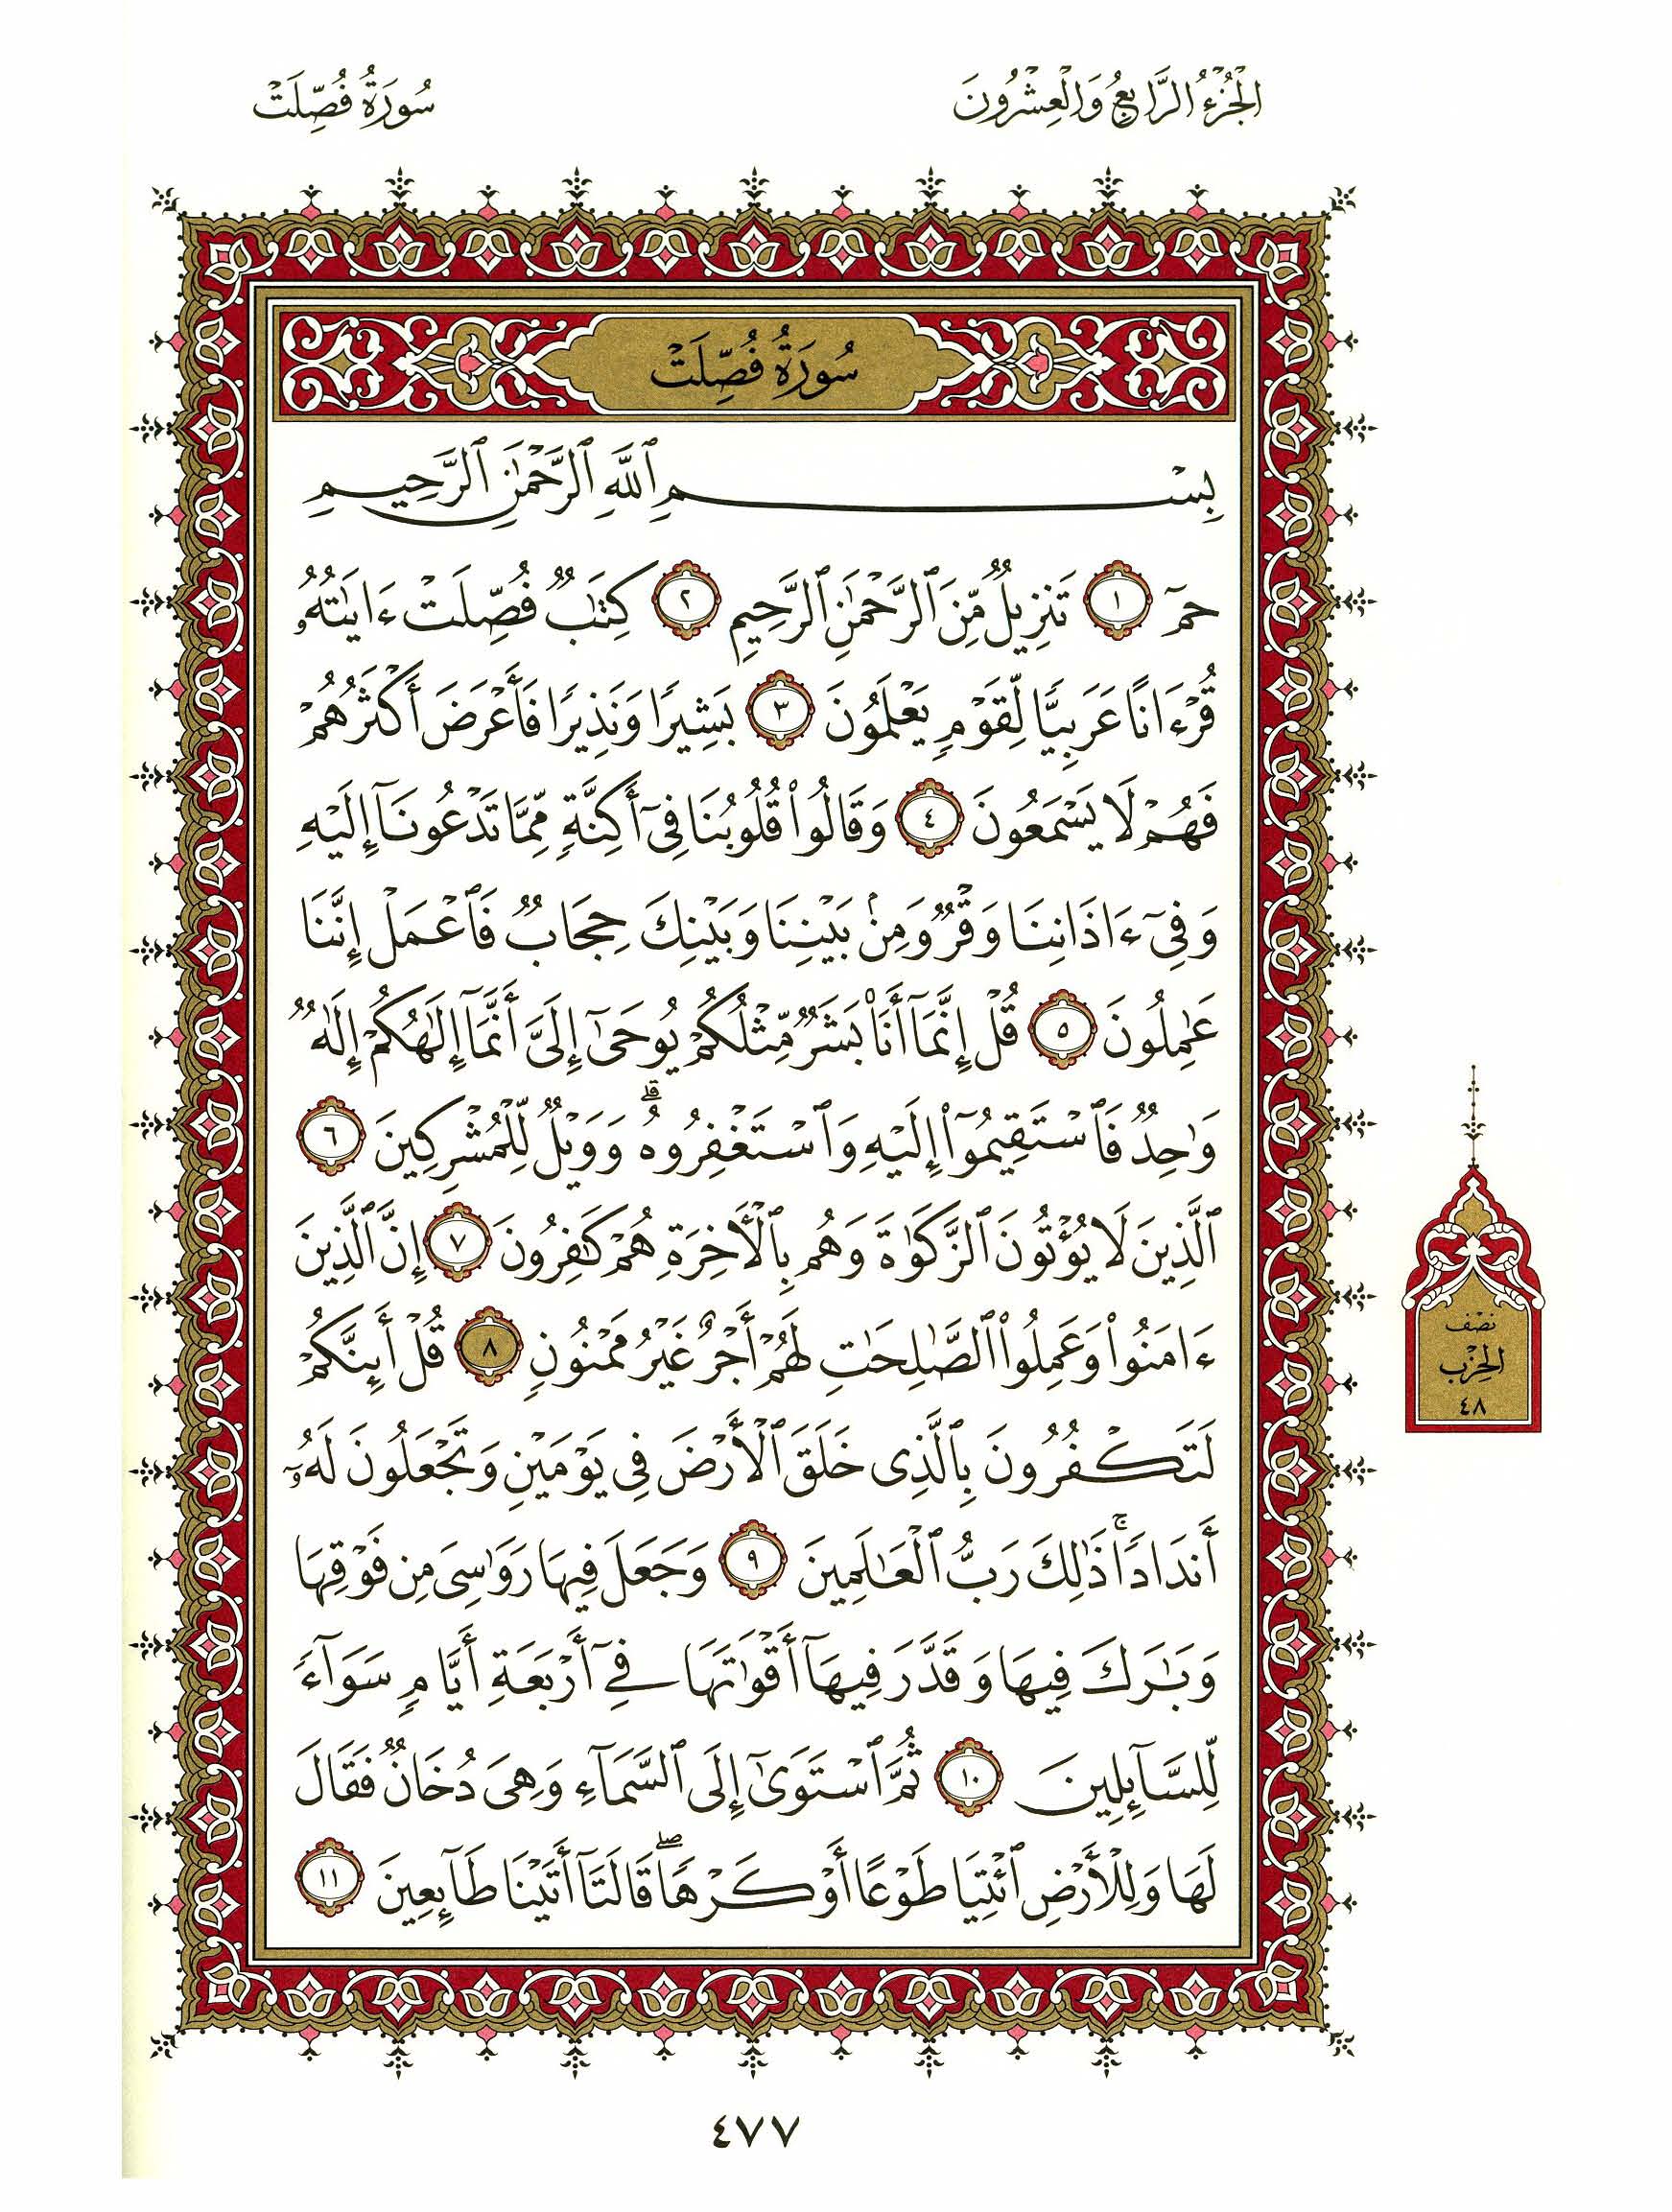 الْجُزْءُ الرَّابِعُ وَالْعِشْرُونَ
سُورَةُ فُصِّلَتْ
سُورَةُ فُصِّلَتْ
بِسْمِ ٱللَّهِ ٱلرَّحْمَٰنِ ٱلرَّحِيمِ
حمٓ ١ تَنزِيلٌ مِّنَ ٱلرَّحْمَٰنِ ٱلرَّحِيمِ ٢ كِتَٰبٌ فُصِّلَتْ ءَايَٰتُهُۥ
قُرْءَانًا عَرَبِيًّا لِّقَوْمٍ يَعْلَمُونَ ٣ بَشِيرًا وَنَذِيرًا فَأَعْرَضَ أَكْثَرُهُمْ
فَهُمْ لَا يَسْمَعُونَ ٤ وَقَالُوا۟ قُلُوبُنَا فِىٓ أَكِنَّةٍ مِّمَّا تَدْعُونَآ إِلَيْهِ
وَفِىٓ ءَاذَانِنَا وَقْرٌ وَمِنۢ بَيْنِنَا وَبَيْنِكَ حِجَابٌ فَٱعْمَلْ إِنَّنَا
عَٰمِلُونَ ٥ قُلْ إِنَّمَآ أَنَا۠ بَشَرٌ مِّثْلُكُمْ يُوحَىٰٓ إِلَىَّ أَنَّمَآ إِلَٰهُكُمْ إِلَٰهٌ
وَٰحِدٌ فَٱسْتَقِيمُوٓا۟ إِلَيْهِ وَٱسْتَغْفِرُوهُ ۗ وَوَيْلٌ لِّلْمُشْرِكِينَ ٦
ٱلَّذِينَ لَا يُؤْتُونَ ٱلزَّكَوٰةَ وَهُم بِٱلْأَخِرَةِ هُمْ كَٰفِرُونَ ٧ إِنَّ ٱلَّذِينَ
ءَامَنُوا۟ وَعَمِلُوا۟ ٱلصَّٰلِحَٰتِ لَهُمْ أَجْرٌ غَيْرُ مَمْنُونٍ ٨ قُلْ أَئِنَّكُمْ
لَتَكْفُرُونَ بِٱلَّذِى خَلَقَ ٱلْأَرْضَ فِى يَوْمَيْنِ وَتَجْعَلُونَ لَهُۥٓ
أَندَادًا ۚ ذَٰلِكَ رَبُّ ٱلْعَٰلَمِينَ ٩ وَجَعَلَ فِيهَا رَوَٰسِىَ مِن فَوْقِهَا
وَبَٰرَكَ فِيهَا وَقَدَّرَ فِيهَآ أَقْوَٰتَهَا فِىٓ أَرْبَعَةِ أَيَّامٍ سَوَآءً
لِّلسَّآئِلِينَ ١٠ ثُمَّ ٱسْتَوَىٰٓ إِلَى ٱلسَّمَآءِ وَهِىَ دُخَانٌ فَقَالَ
لَهَا وَلِلْأَرْضِ ٱئْتِيَا طَوْعًا أَوْ كَرْهًا ۖ قَالَتَآ أَتَيْنَا طَآئِعِينَ ١١
نصْف
الحِزْب
٤٨
٤٧٧